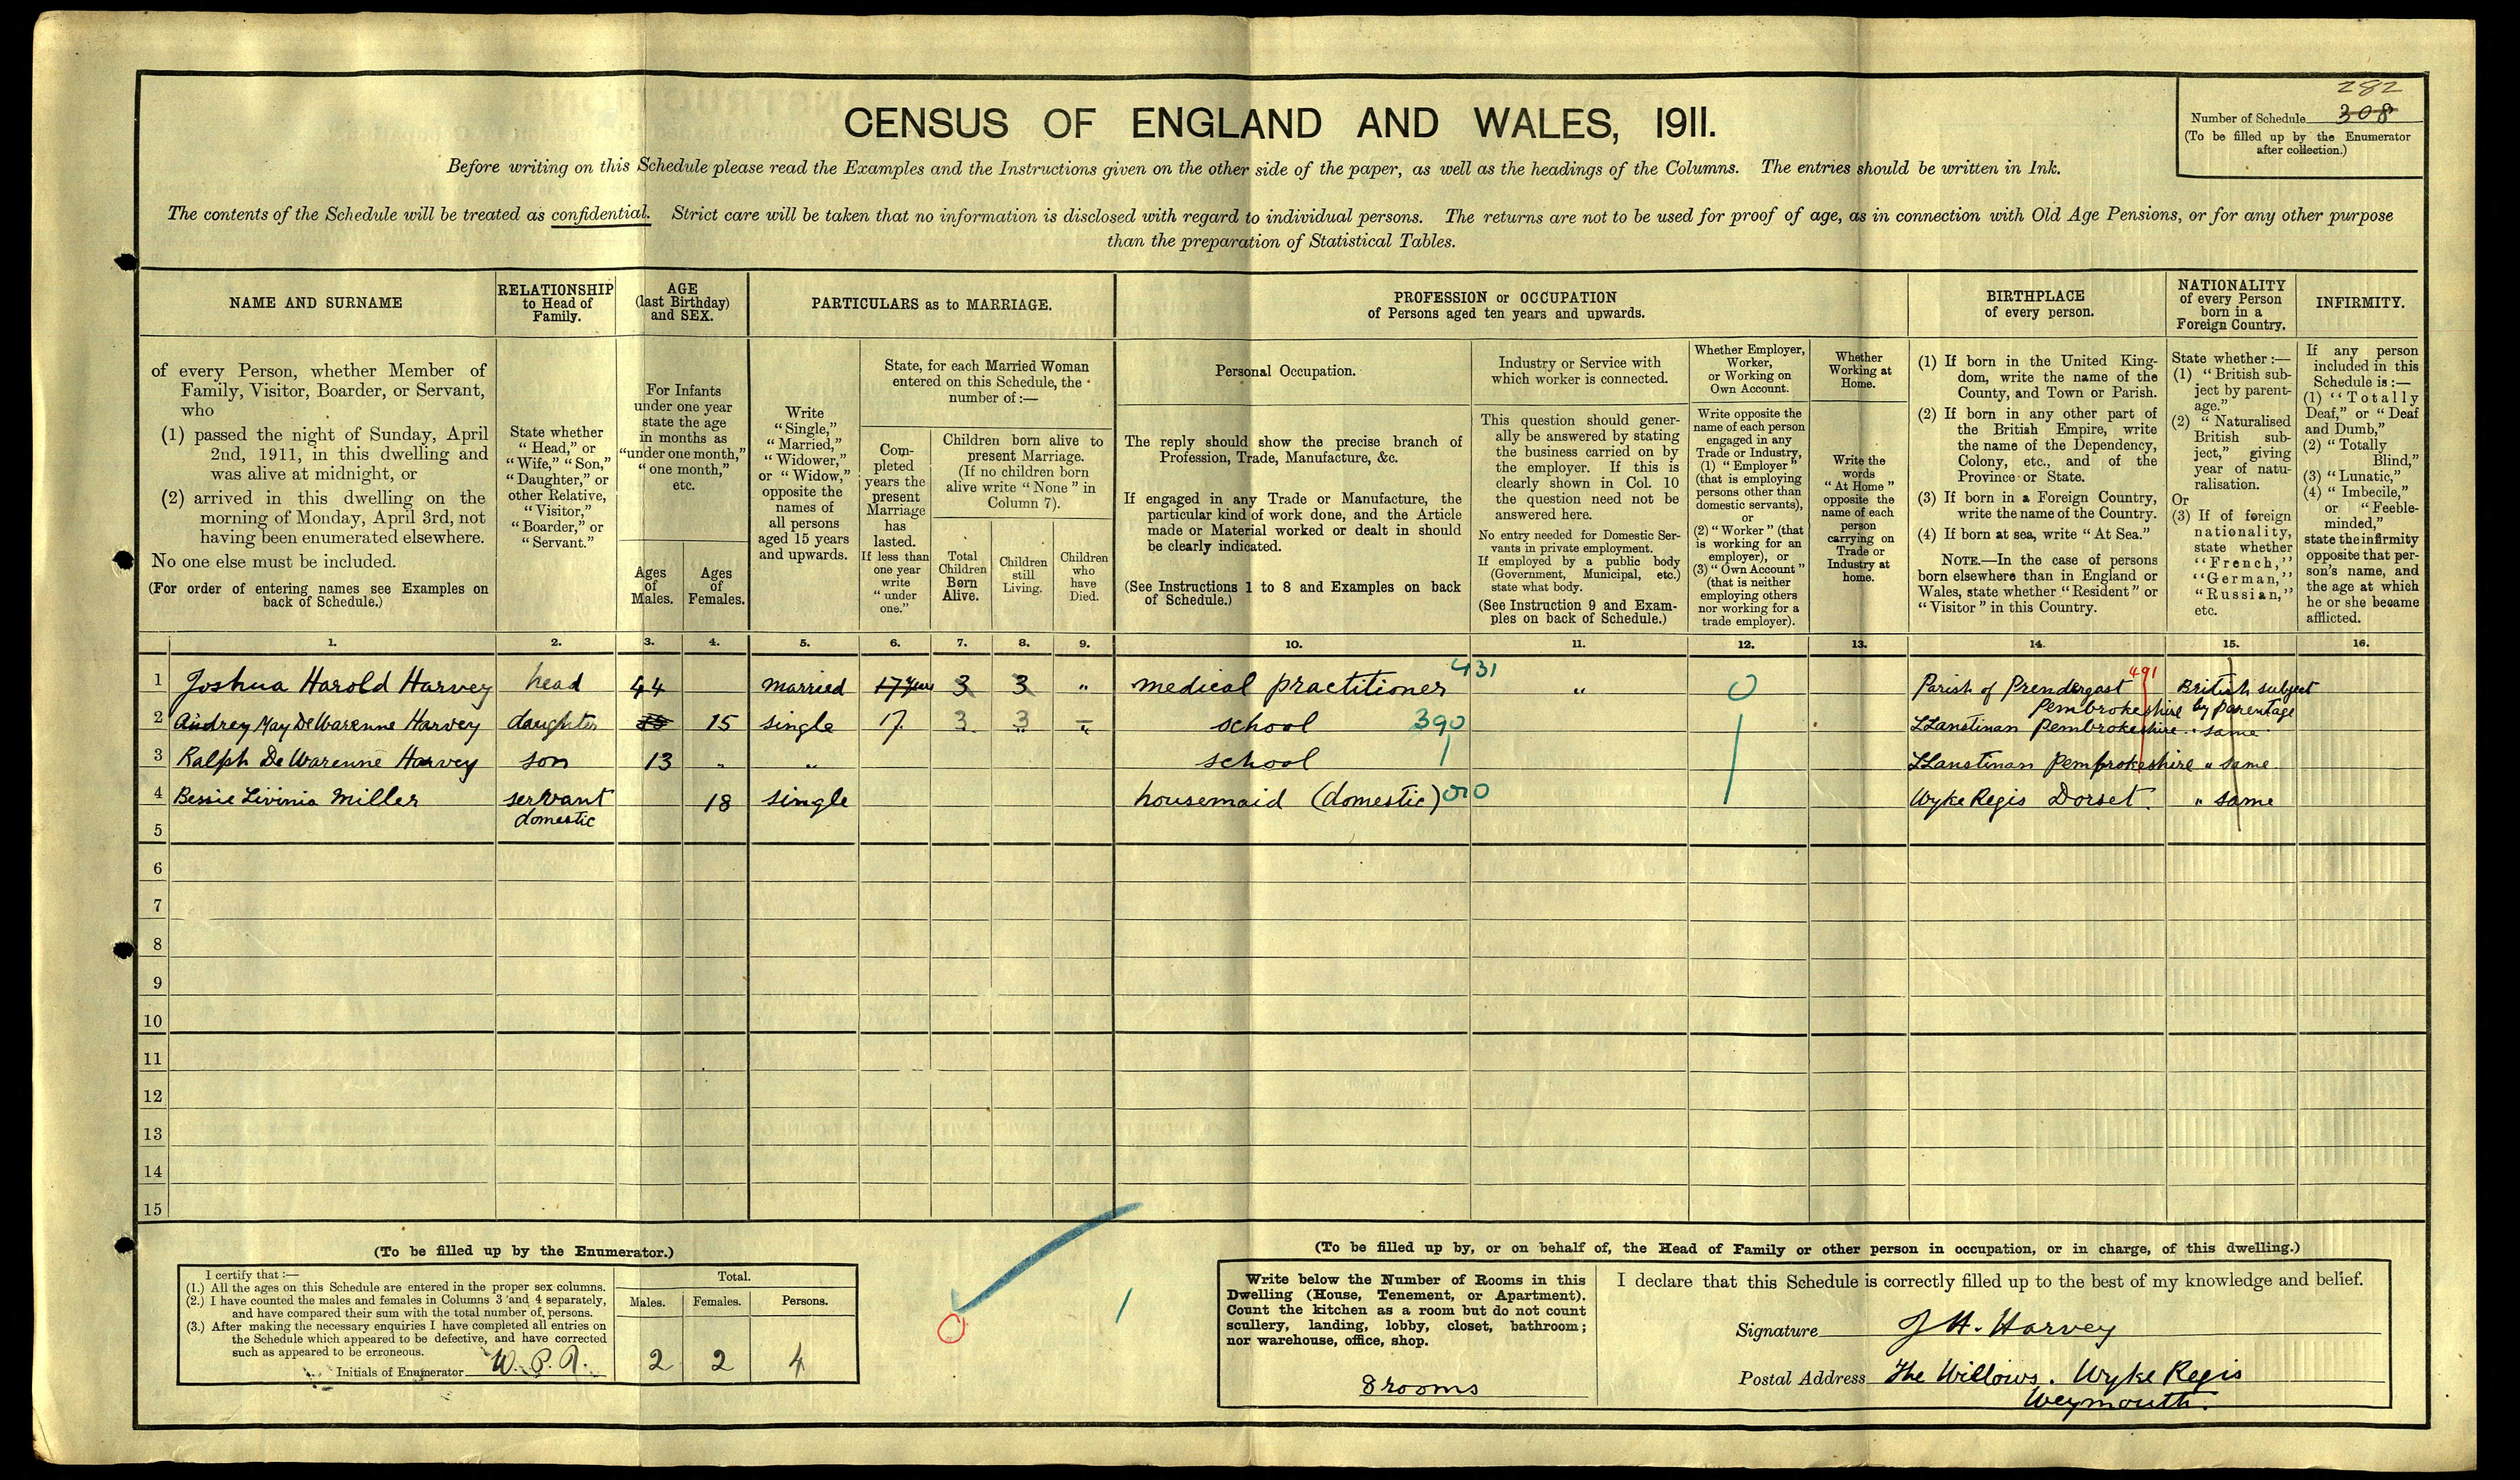 282
Number of Schedule 308
(To be filled up by the Enumerator
after collection.)
CENSUS OF ENGLAND AND WALES, 1911.
Before writing on this Schedule please read the Examples and the Instructions given on the other side of the paper, as well as the headings of the Columns. The entries should be written in Ink.
The contents of the Schedule will be treated as confidential. Strict care will be taken that no information is disclosed with regard to individual persons. The returns are not to be used for proof of age, as in connection with Old Age Pensions, or for any other purpose
than the preparation of Statistical Tables.
NAME AND SURNAME
of every Person, whether Member of
Family, Visitor, Boarder, or Servant,
who
(1) passed the night of Sunday, April
2nd, 1911, in this dwelling and
was alive at midnight, or
(2) arrived in this dwelling on the
morning of Monday, April 3rd, not
having been enumerated elsewhere.
No one else must be included.
(For order of entering names see Examples on
back of Schedule.)
RELATIONSHIP
to Head of
Family.
State whether
"Head," or
"Wife," "Son,"
"Daughter," or
other Relative,
"Visitor,"
"Boarder," or
"Servant."
AGE
(last Birthday)
and SEX.
For Infants
under one year
state the age
in months as
"under one month,"
"one month,"
etc.
Ages
of
Males.
Ages
of
Females.
PARTICULARS as to MARRIAGE.
Write
"Single,"
"Married,"
"Widower,"
or "Widow,"
opposite the
names of
all persons
aged 15 years
and upwards.
State, for each Married Woman
entered on this Schedule, the
number of:—
Com-
pleted
years the
present
Marriage
has
lasted.
If less than
one year
write
"under
one."
Children born alive to
present Marriage.
(If no children born
alive write "None" in
Column 7).
Total
Children
Born
Alive.
Children
still
Living.
Children
who
have
Died.
PROFESSION or OCCUPATION
of Persons aged ten years and upwards.
Personal Occupation.
The reply should show the precise branch of
Profession, Trade, Manufacture, &c.
If engaged in any Trade or Manufacture, the
particular kind of work done, and the Article
made or Material worked or dealt in should
be clearly indicated.
(See Instructions 1 to 8 and Examples on back
of Schedule.)
Industry or Service with
which worker is connected.
This question should gener-
ally be answered by stating
the business carried on by
the employer. If this is
clearly shown in Col. 10
the question need not be
answered here.
No entry needed for Domestic Ser-
vants in private employment.
If employed by a public body
(Government, Municipal, etc.)
state what body.
(See Instruction 9 and Exam-
ples on back of Schedule.)
Whether Employer,
Worker,
or Working on
Own Account.
Write opposite the
name of each person
engaged in any
Trade or Industry,
(1) "Employer"
(that is employing
persons other than
domestic servants),
or
(2) "Worker" (that
is working for an
employer), or
(3) "Own Account"
(that is neither
employing others
nor working for a
trade employer).
Whether
Working at
Home.
Write the
words
"At Home"
opposite the
name of each
person
carrying on
Trade or
Industry at
home.
BIRTHPLACE
of every person.
(1) If born in the United King-
dom, write the name of the
County, and Town or Parish.
(2) If born in any other part of
the British Empire, write
the name of the Dependency,
Colony, etc., and of the
Province or State.
(3) If born in a Foreign Country,
write the name of the Country.
(4) If born at sea, write "At Sea."
NOTE.—In the case of persons
born elsewhere than in England or
Wales, state whether "Resident" or
"Visitor" in this Country.
NATIONALITY
of every Person
born in a
Foreign Country.
State whether:—
(1) "British sub-
ject by parent-
age."
(2) "Naturalised
British sub-
ject," giving
year of natu-
ralisation.
Or
(3) If of foreign
nationality,
state whether
"French,"
"German,"
"Russian,"
etc.
INFIRMITY.
If any person
included in this
Schedule is:—
(1) "Totally
Deaf," or "Deaf
and Dumb,"
(2) "Totally
Blind,"
(3) "Lunatic,"
(4) "Imbecile,"
or "Feeble-
minded,"
state the infirmity
opposite that per-
son's name, and
the age at which
he or she became
afflicted.
1. 2. 3. 4. 5. 6. 7. 8. 9. 10. 11. 12. 13. 14. 15. 16.
1 Joshua Harold Harvey head 44 married 17 yrs 3 3 " medical practitioner 431 " 0 Parish of Prendergast 491 British subject
Pembrokeshire by parentage
2 Audrey May De Warenne Harvey daughter 15 single 17. 3 3 school 390 LLanstinan Pembrokeshire " same
3 Ralph De Warenne Harvey son 13 " " school LLanstinan Pembrokeshire " same
4 Bessie Livinia Miller servant 18 single housemaid (domestic) 010 Wyke Regis Dorset. " same
domestic
5
6
7
8
9
10
11
12
13
14
15
(To be filled up by the Enumerator.)
I certify that:—
(1.) All the ages on this Schedule are entered in the proper sex columns.
(2.) I have counted the males and females in Columns 3 and 4 separately,
and have compared their sum with the total number of persons.
(3.) After making the necessary enquiries I have completed all entries on
the Schedule which appeared to be defective, and have corrected
such as appeared to be erroneous.
Initials of Enumerator
Total.
Males. Females. Persons.
2 2 4
(To be filled up by, or on behalf of, the Head of Family or other person in occupation, or in charge, of this dwelling.)
Write below the Number of Rooms in this
Dwelling (House, Tenement, or Apartment).
Count the kitchen as a room but do not count
scullery, landing, lobby, closet, bathroom;
nor warehouse, office, shop.
8 rooms
I declare that this Schedule is correctly filled up to the best of my knowledge and belief.
Signature J H. Harvey
Postal Address The Willows. Wyke Regis
Weymouth.